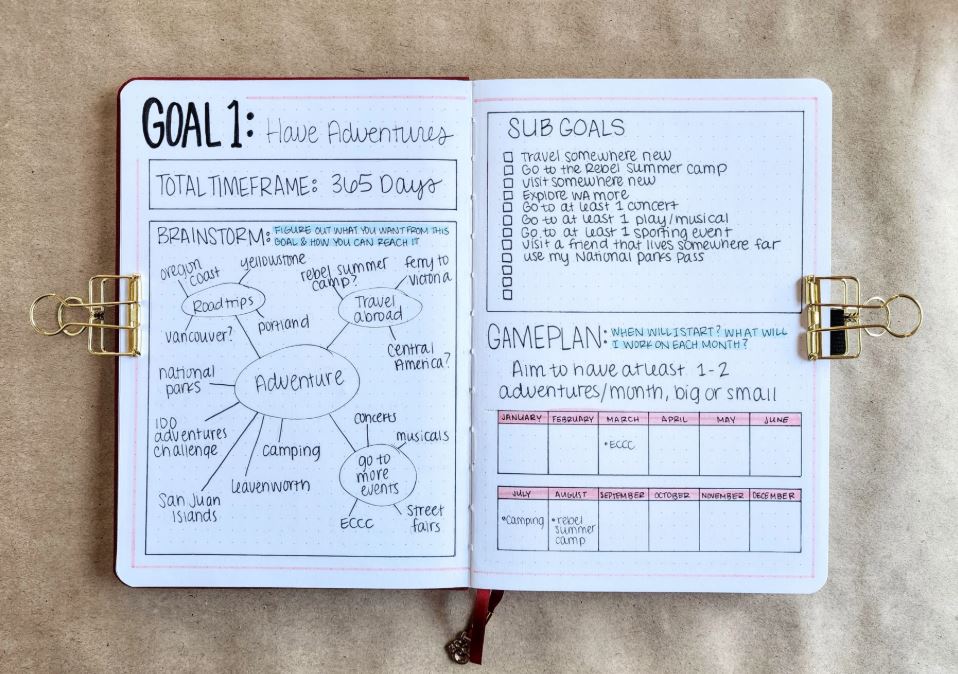 GOAL 1: Have Adventures
TOTAL TIMEFRAME: 365 Days
BRAINSTORM: FIGURE OUT WHAT YOU WANT FROM THIS
GOAL & HOW YOU CAN REACH IT
oregon
coast
yellowstone
Roadtrips
vancouver?
portland
rebel summer
camp?
ferry to
victoria
Travel
abroad
Central
America?
Adventure
national
parks
100
adventures
challenge
San Juan
Islands
leavenworth
camping
concerts
musicals
go to
more
events
ECCC
street
fairs
SUB GOALS
Travel somewhere new
Go to the Rebel Summer camp
Visit somewhere new
Explore WA more
Go to at least 1 concert
Go to at least 1 play/musical
Go to at least 1 sporting event
Visit a friend that lives somewhere far
use my National parks Pass
GAMEPLAN: WHEN WILL I START? WHAT WILL
I WORK ON EACH MONTH?
Aim to have atleast 1-2
adventures/month, big or small
JANUARY FEBRUARY MARCH APRIL MAY JUNE
•ECCC
JULY AUGUST SEPTEMBER OCTOBER NOVEMBER DECEMBER
•camping
•rebel
summer
camp